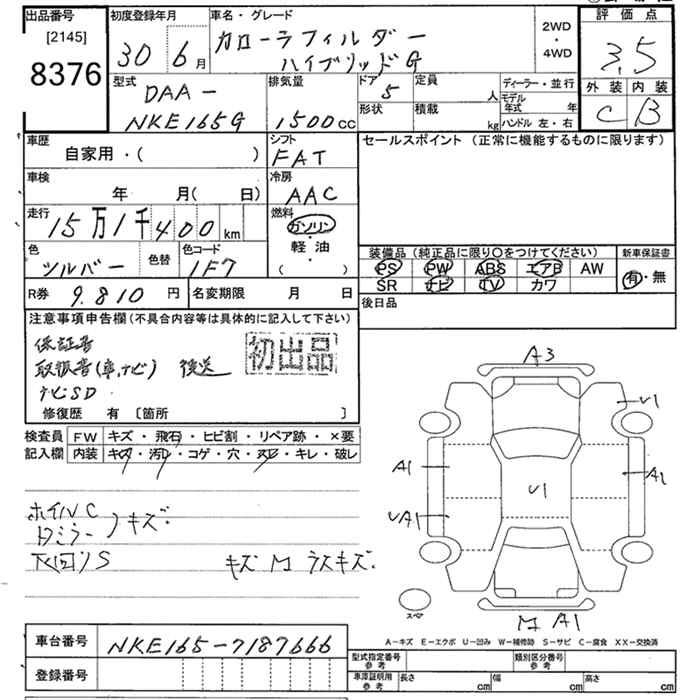 出品番号
[2145]
8376
初度登録年月
30 6月
車名・グレード
カローラフィルダー
ハイブリッドG
2WD
・
4WD
評価点
3.5
外装 内装
C B
型式
DAA-
NKE165G
排気量
1500cc
ドア
5
形状
定員
人
積載
kg
ディーラー・並行
モデル年式 年
ハンドル 左・右
車歴
自家用・( )
シフト
FAT
車検
年 月(日)
冷房
AAC
走行
15万1千400km
燃料
ガソリン
・
軽・油
( )
色
シルバー
色替
色コード
1F7
R券 9.810円
名変期限 月 日
セールスポイント (正常に機能するものに限ります)
装備品(純正品に限り○をつけてください)
PS PW ABS エアB AW
SR ナビ TV カワ
新車保証書
有・無
後日品
注意事項申告欄(不具合内容等は具体的に記入して下さい)
保証書
取扱書(車,ナビ) 後送
ナビSD
初出品
修復歴 有 [箇所 ]
検査員記入欄
FW キズ・飛石・ヒビ割・リペア跡・×要
内装 キズ・汚レ・コゲ・穴・スレ・キレ・破レ
ホイルC
ドアミラー)キズ
下回りS
キズ M ラスキズ.
A3
U1
A1
A1
U1
UA1
スペア
M A1
A-キズ E-エクボ U-凹み W-補修跡 S-サビ C-腐食 XX-交換済
車台番号 NKE165-7187666
登録番号
型式指定番号
参考
類別区分番号
参考
車庫証明用
参考
長さ cm 幅 cm 高さ cm